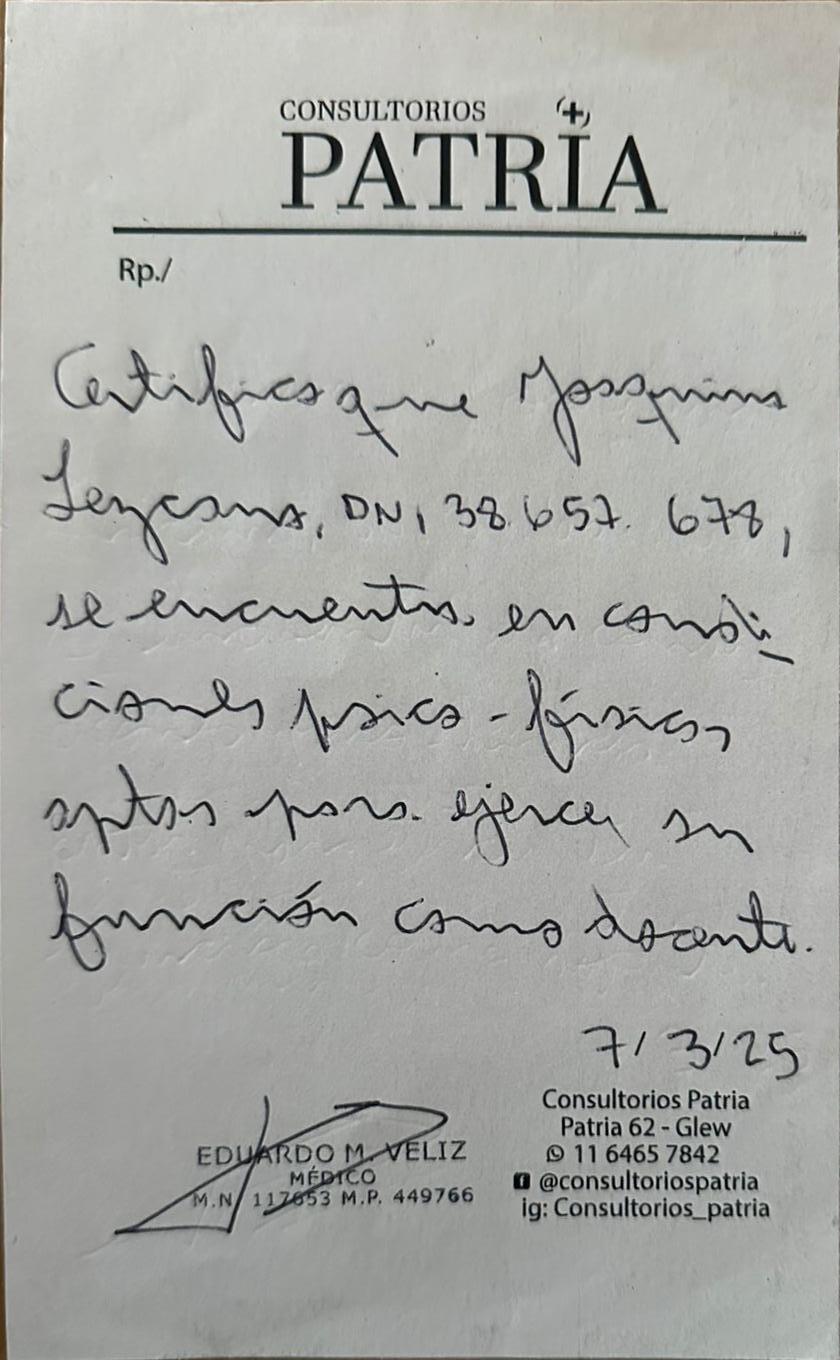 CONSULTORIOS
PATRIA
Rp./
Certifico que Joaquina
Lezcano, DNI 38.657.678,
se encuentra en condi-
ciones psico-físicas
aptas para ejercer su
función como docente.
7/3/25
EDUARDO M. VELIZ
MÉDICO
M.N. 117653 M.P. 449766
Consultorios Patria
Patria 62 - Glew
11 6465 7842
@consultoriospatria
ig: Consultorios_patria